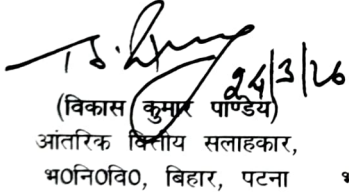 24/3/26
(विकास कुमार पाण्डेय)
आंतरिक वित्तीय सलाहकार,
भ0नि0वि0, बिहार, पटना